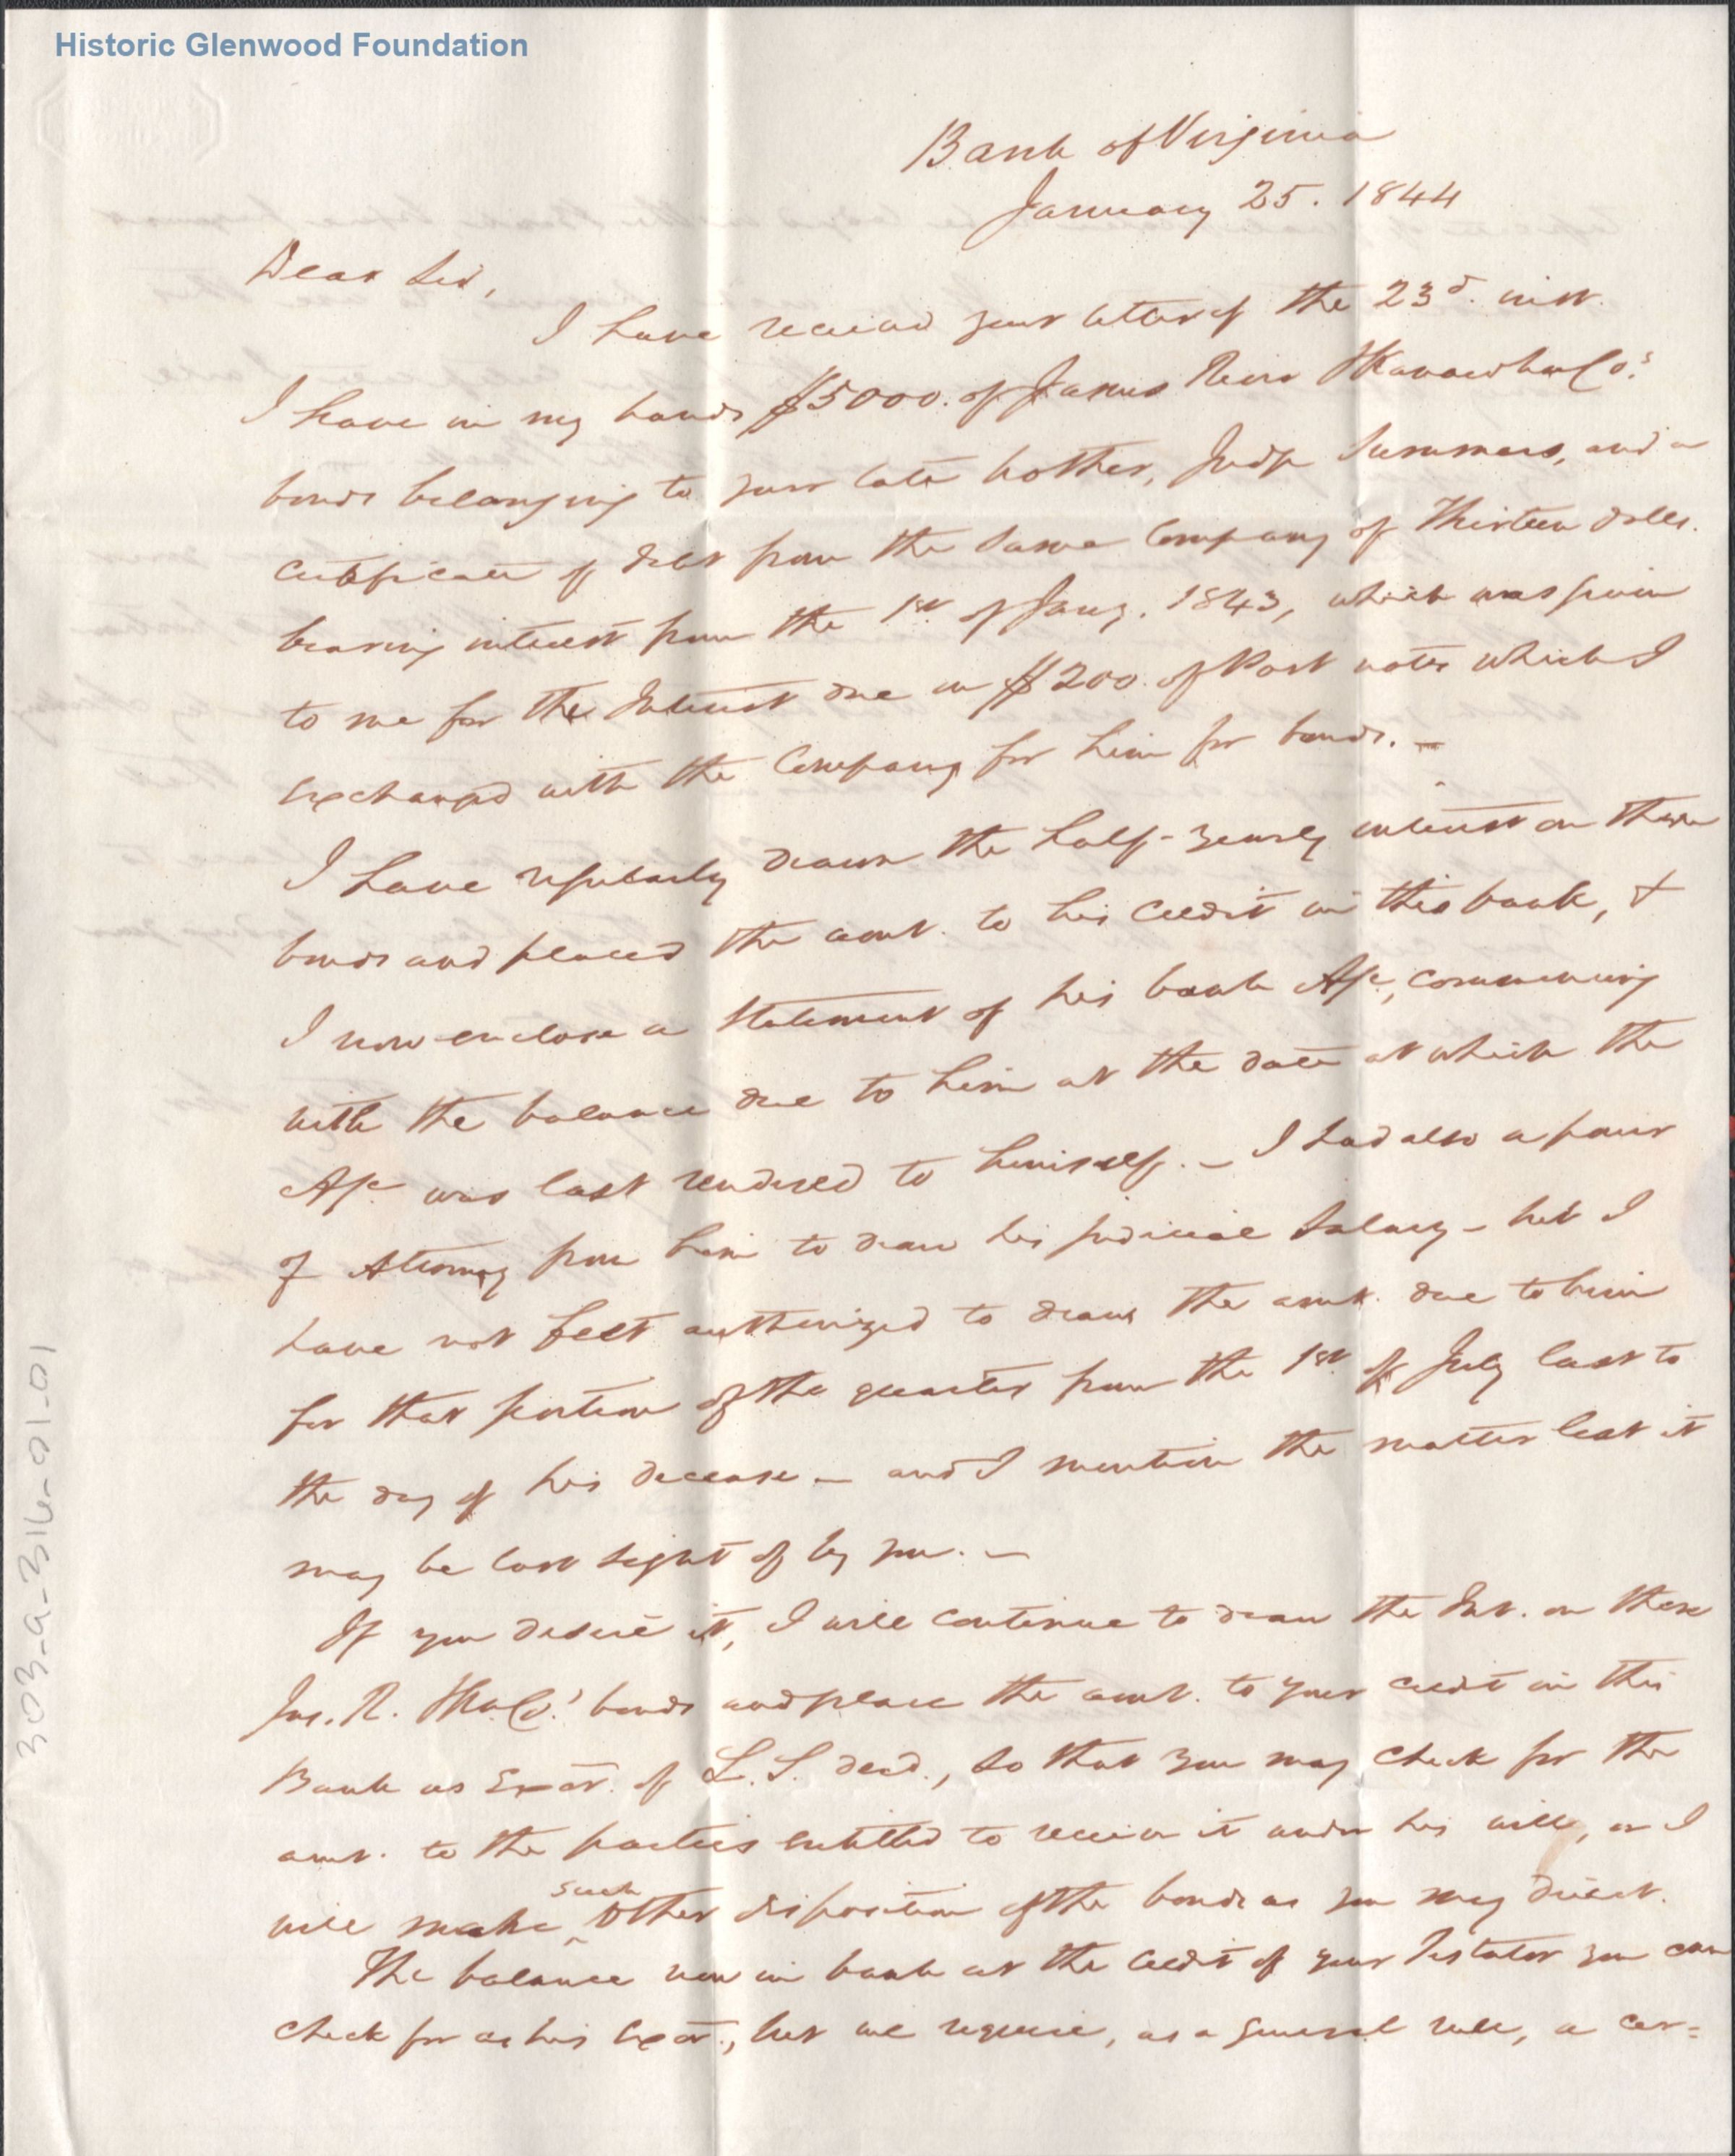 Historic Glenwood Foundation
Bank of Virginia
January 25. 1844
Dear Sir,
I have received your letter of the 23d. inst.
I have in my hands $5000. of James River & Kanawha Co's.
bonds belonging to your late brother, Judge Summers, and a
certificate of debt from the same Company of Thirteen dolls.
bearing interest from the 1st. of Jany. 1843, which was given
to me for the Interest due on $200. of Post notes which I
exchanged with the Company for him for bonds. —
I have regularly drawn the half-yearly interest on these
bonds and placed the amt. to his credit in this bank, &
I now enclose a statement of his bank A/c, commencing
with the balance due to him at the date at which the
A/c was last rendered to himself. — I had also a power
of Attorney from him to draw his judicial Salary — but I
have not felt authorized to draw the amt. due to him
for that portion of the quarter from the 1st. of July last to
the day of his decease — and I mention the matter lest it
may be lost sight of by you. —
If you desire it, I will continue to draw the Int. on these
Jas. R. & Ka. Co.' bonds and place the amt. to your credit in this
Bank as Exor. of L. S. decd., so that you may check for the
amt. to the parties entitled to receive it under his will, or I
will make such other disposition of the bonds as you may direct.
The balance now in bank at the credit of your Testator you can
check for as his Exor., but we require, as a general rule, a cer=
303-a-316-01-01